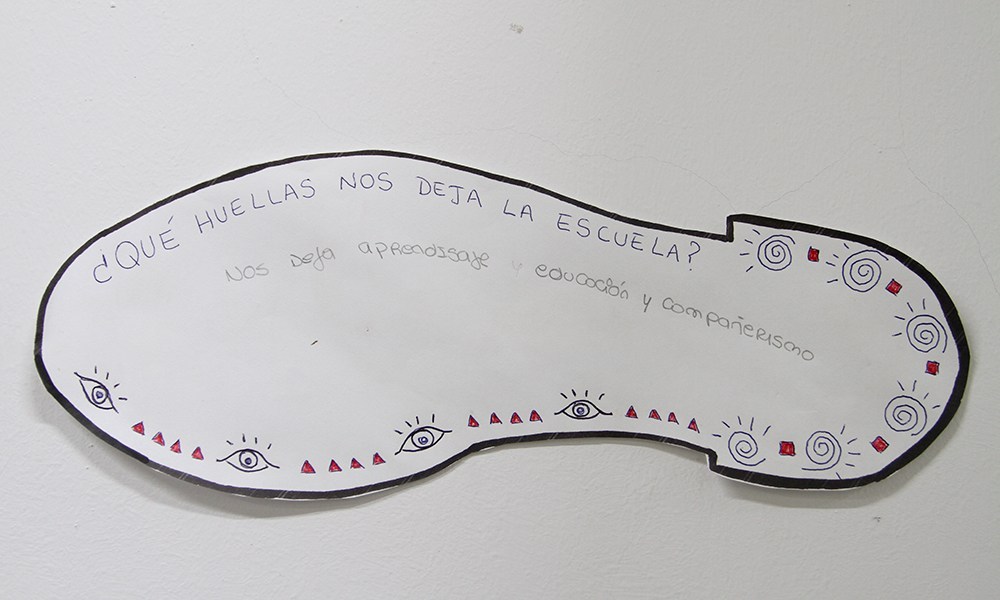 ¿QUÉ HUELLAS NOS DEJA LA ESCUELA?
Nos Deja aprendisaje y educación y compañerismo